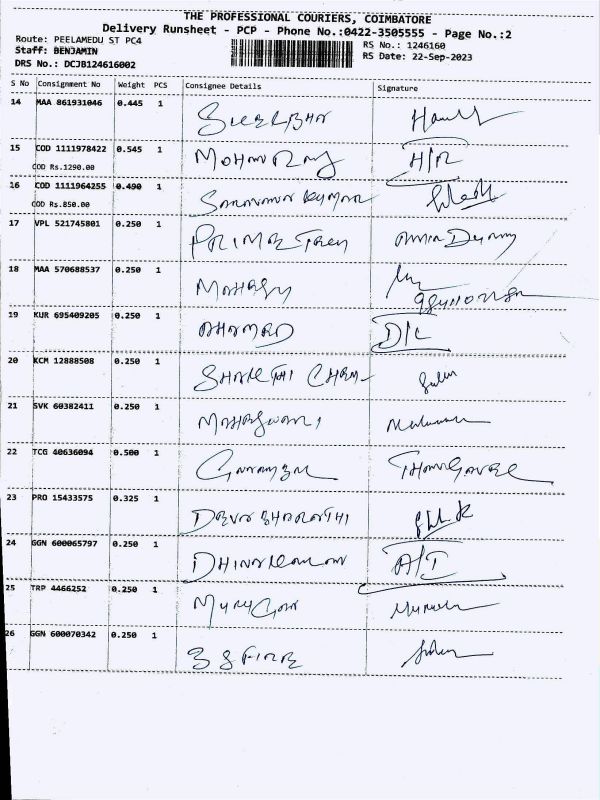 THE PROFESSIONAL COURIERS, COIMBATORE
Delivery Runsheet - PCP - Phone No.:0422-3505555 - Page No.:2
Route: PEELAMEDU ST PC4
RS No.: 1246160
Staff: BENJAMIN
RS Date: 22-Sep-2023
DRS No.: DCJB124616002
S No Consignment No Weight PCS Consignee Details Signature
14 MAA 861931046 0.445 1
15 COD 1111978422 0.545 1 MOHAN RAJ H/R
COD Rs.1290.00
16 COD 1111964255 0.490 1 SARAVANA KUMAR
COD Rs.850.00
17 VPL 521745801 0.250 1 PRIME
18 MAA 570688537 0.250 1
19 KUR 695409205 0.250 1 AHAMED D/L
20 KCM 12888508 0.250 1
21 SVK 60382411 0.250 1 MAHESWARI
22 TCG 40636094 0.500 1 THANGAVEL
23 PRO 15433575 0.325 1 DEVA BHARATHI
24 GGN 600065797 0.250 1 DHINAKARAN A/T
25 TRP 4466252 0.250 1 MURUGAN
26 GGN 600070342 0.250 1 3 S FIRE